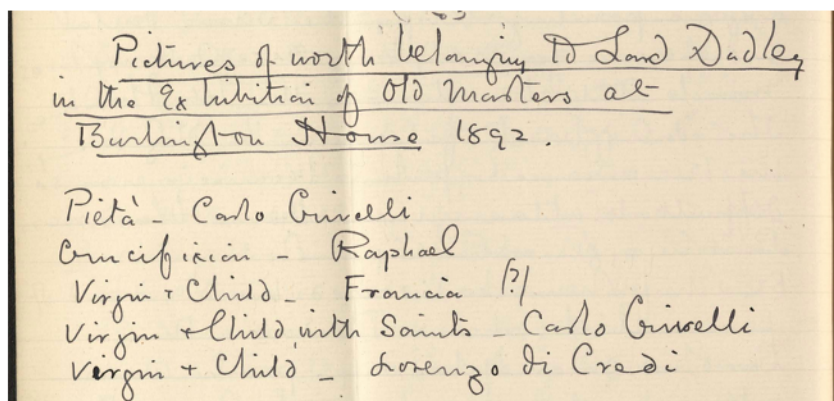 Pictures of worth belonging to Lord Dudley
in the Exhibition of Old Masters at
Burlington House 1892.
Pietà - Carlo Crivelli
Crucifixion - Raphael
Virgin + Child - Francia (?)
Virgin + Child with Saints - Carlo Crivelli
Virgin + Child - Lorenzo di Credi